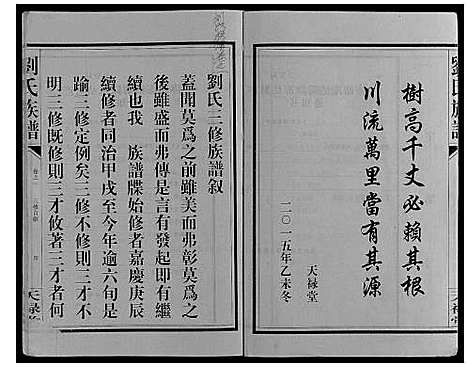 劉氏族譜
樹高千丈必賴其根
川流萬里當有其源
天祿堂
二〇一五年乙未冬
劉氏三修族譜叙
蓋聞莫爲之前雖美而弗彰莫爲之
後雖盛而弗傳是言有發起即有繼
續也我 族譜牒始修者嘉慶庚辰
續修者同治甲戌至今年逾六旬是
踰三修定例矣三修不修則三才不
明三修既修則三才攸著三才者何
劉氏族譜
天祿堂